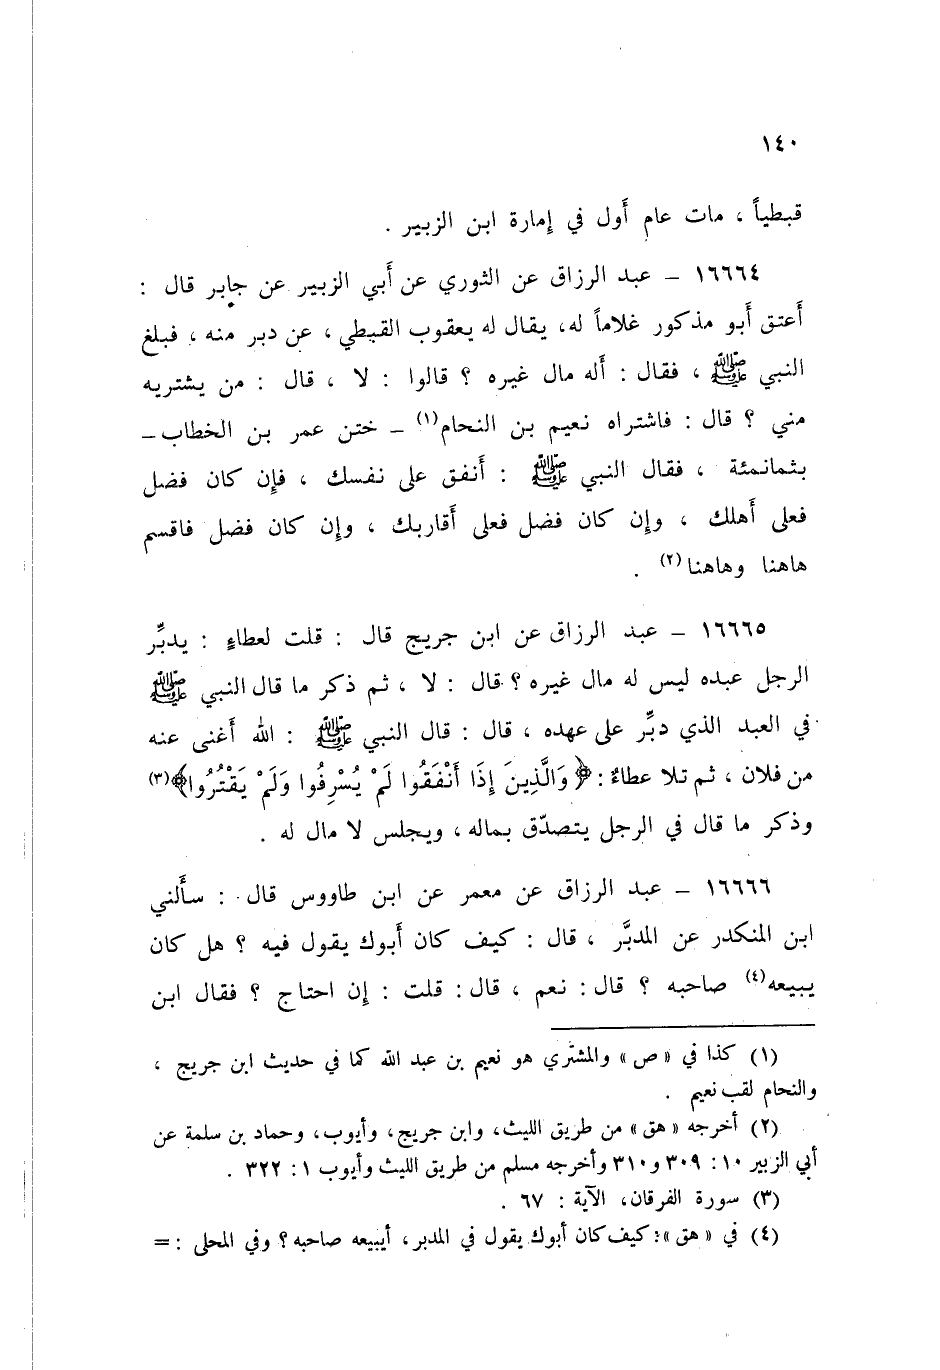 ١٤٠
قبطياً ، مات عام أَول في إمارة ابن الزبير .
١٦٦٦٤ – عبد الرزاق عن الثوري عن أَبي الزبير عن جابر قال :
أَعتق أَبو مذكور غلاماً له، يقال له يعقوب القبطي ، عن دبر منه ، فبلغ
النبي ﷺ ، فقال : أَله مال غيره ؟ قالوا : لا ، قال : من يشتريه
مني ؟ قال : فاشتراه نعيم بن النحام(١) – ختن عمر بن الخطاب –
بثمانمئة ، فقال النبي ﷺ : أَنفق على نفسك ، فإن كان فضل
فعلى أَهلك ، وإن كان فضل فعلى أَقاربك ، وإن كان فضل فاقسم
هاهنا وهاهنا(٢) .
١٦٦٦٥ – عبد الرزاق عن ابن جريج قال : قلت لعطاءٍ : يدبِّر
الرجل عبده ليس له مال غيره ؟ قال : لا ، ثم ذكر ما قال النبي ﷺ
في العبد الذي دبِّر على عهده ، قال : قال النبي ﷺ : الله أَغنى عنه
من فلان ، ثم تلا عطاءٌ : ﴿وَالَّذِينَ إِذَا أَنْفَقُوا لَمْ يُسْرِفُوا وَلَمْ يَقْتُرُوا﴾(٣)
وذكر ما قال في الرجل يتصدّق بماله ، ويجلس لا مال له .
١٦٦٦٦ – عبد الرزاق عن معمر عن ابن طاووس قال : سأَلني
ابن المنكدر عن المدبَّر ، قال : كيف كان أَبوك يقول فيه ؟ هل كان
يبيعه(٤) صاحبه ؟ قال : نعم ، قال : قلت : إن احتاج ؟ فقال ابن
(١) كذا في « ص » والمشتري هو نعيم بن عبد الله كما في حديث ابن جريج ،
والنحام لقب نعيم .
(٢) أخرجه « هق » من طريق الليث، وابن جريج، وأيوب، وحماد بن سلمة عن
أبي الزبير ١٠ : ٣٠٩ و٣١٠ وأخرجه مسلم من طريق الليث وأيوب ١ : ٣٢٢ .
(٣) سورة الفرقان، الآية : ٦٧ .
(٤) في « هق »: كيف كان أبوك يقول في المدبر ، أيبيعه صاحبه ؟ وفي المحلى : =